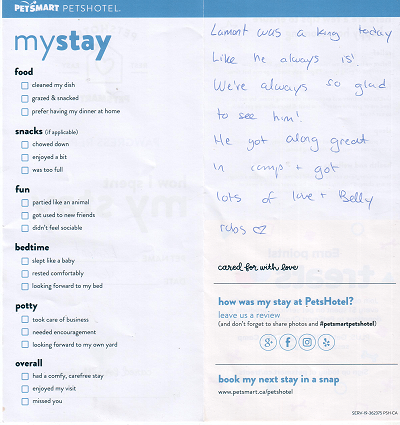 PETSMART PETSHOTEL
mystay
food
cleaned my dish
grazed & snacked
prefer having my dinner at home
snacks (if applicable)
chowed down
enjoyed a bit
was too full
fun
partied like an animal
got used to new friends
didn't feel sociable
bedtime
slept like a baby
rested comfortably
looking forward to my bed
potty
took care of business
needed encouragement
looking forward to my own yard
overall
had a comfy, carefree stay
enjoyed my visit
missed you
Lamont was a king today
Like he always is!
We're always so glad
to see him!
He got along great
in camp + got
lots of love + Belly
rubs
cared for with love
how was my stay at PetsHotel?
leave us a review
(and don't forget to share photos and #petsmartpetshotel)
book my next stay in a snap
www.petsmart.ca/petshotel
SERV-19-362375 PSH CA